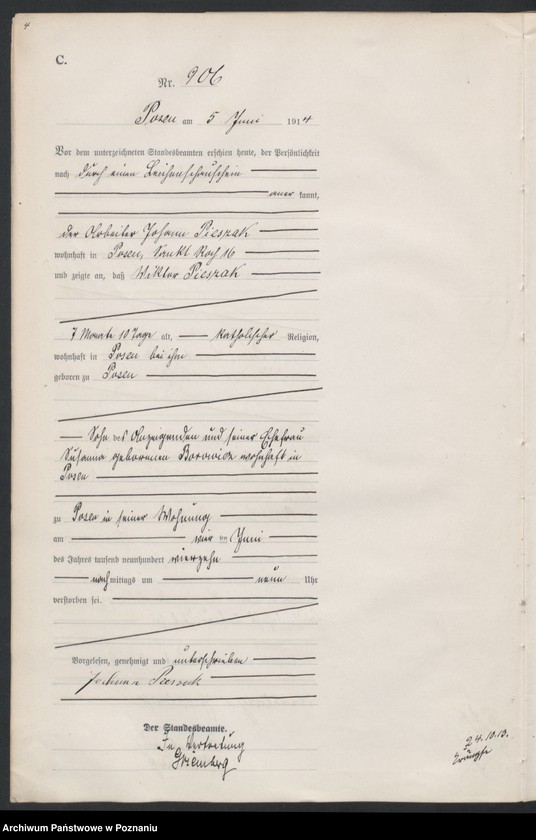 C.
Nr. 906
Posen am 5 Juni 1914
Vor dem unterzeichneten Standesbeamten erschien heute, der Persönlichkeit
nach durch einen Leichenschauschein
aner kannt,
der Arbeiter Johann Pieszak
wohnhaft in Posen, Sankt Roch 16
und zeigte an, daß Wiktor Pieszak
7 Monate 10 Tage alt, katholischer Religion,
wohnhaft in Posen bei ihm
geboren zu Posen
Sohn des Anzeigenden und seiner Ehefrau
Susanna geborenen Borowicz wohnhaft in
Posen
zu Posen in seiner Wohnung
am vier ten Juni
des Jahres tausend neunhundert vierzehn
nachmittags um neun Uhr
verstorben sei.
Vorgelesen, genehmigt und unterschrieben
Johann Pieszak
Der Standesbeamte.
In Vertretung
24.10.13.
Archiwum Państwowe w Poznaniu